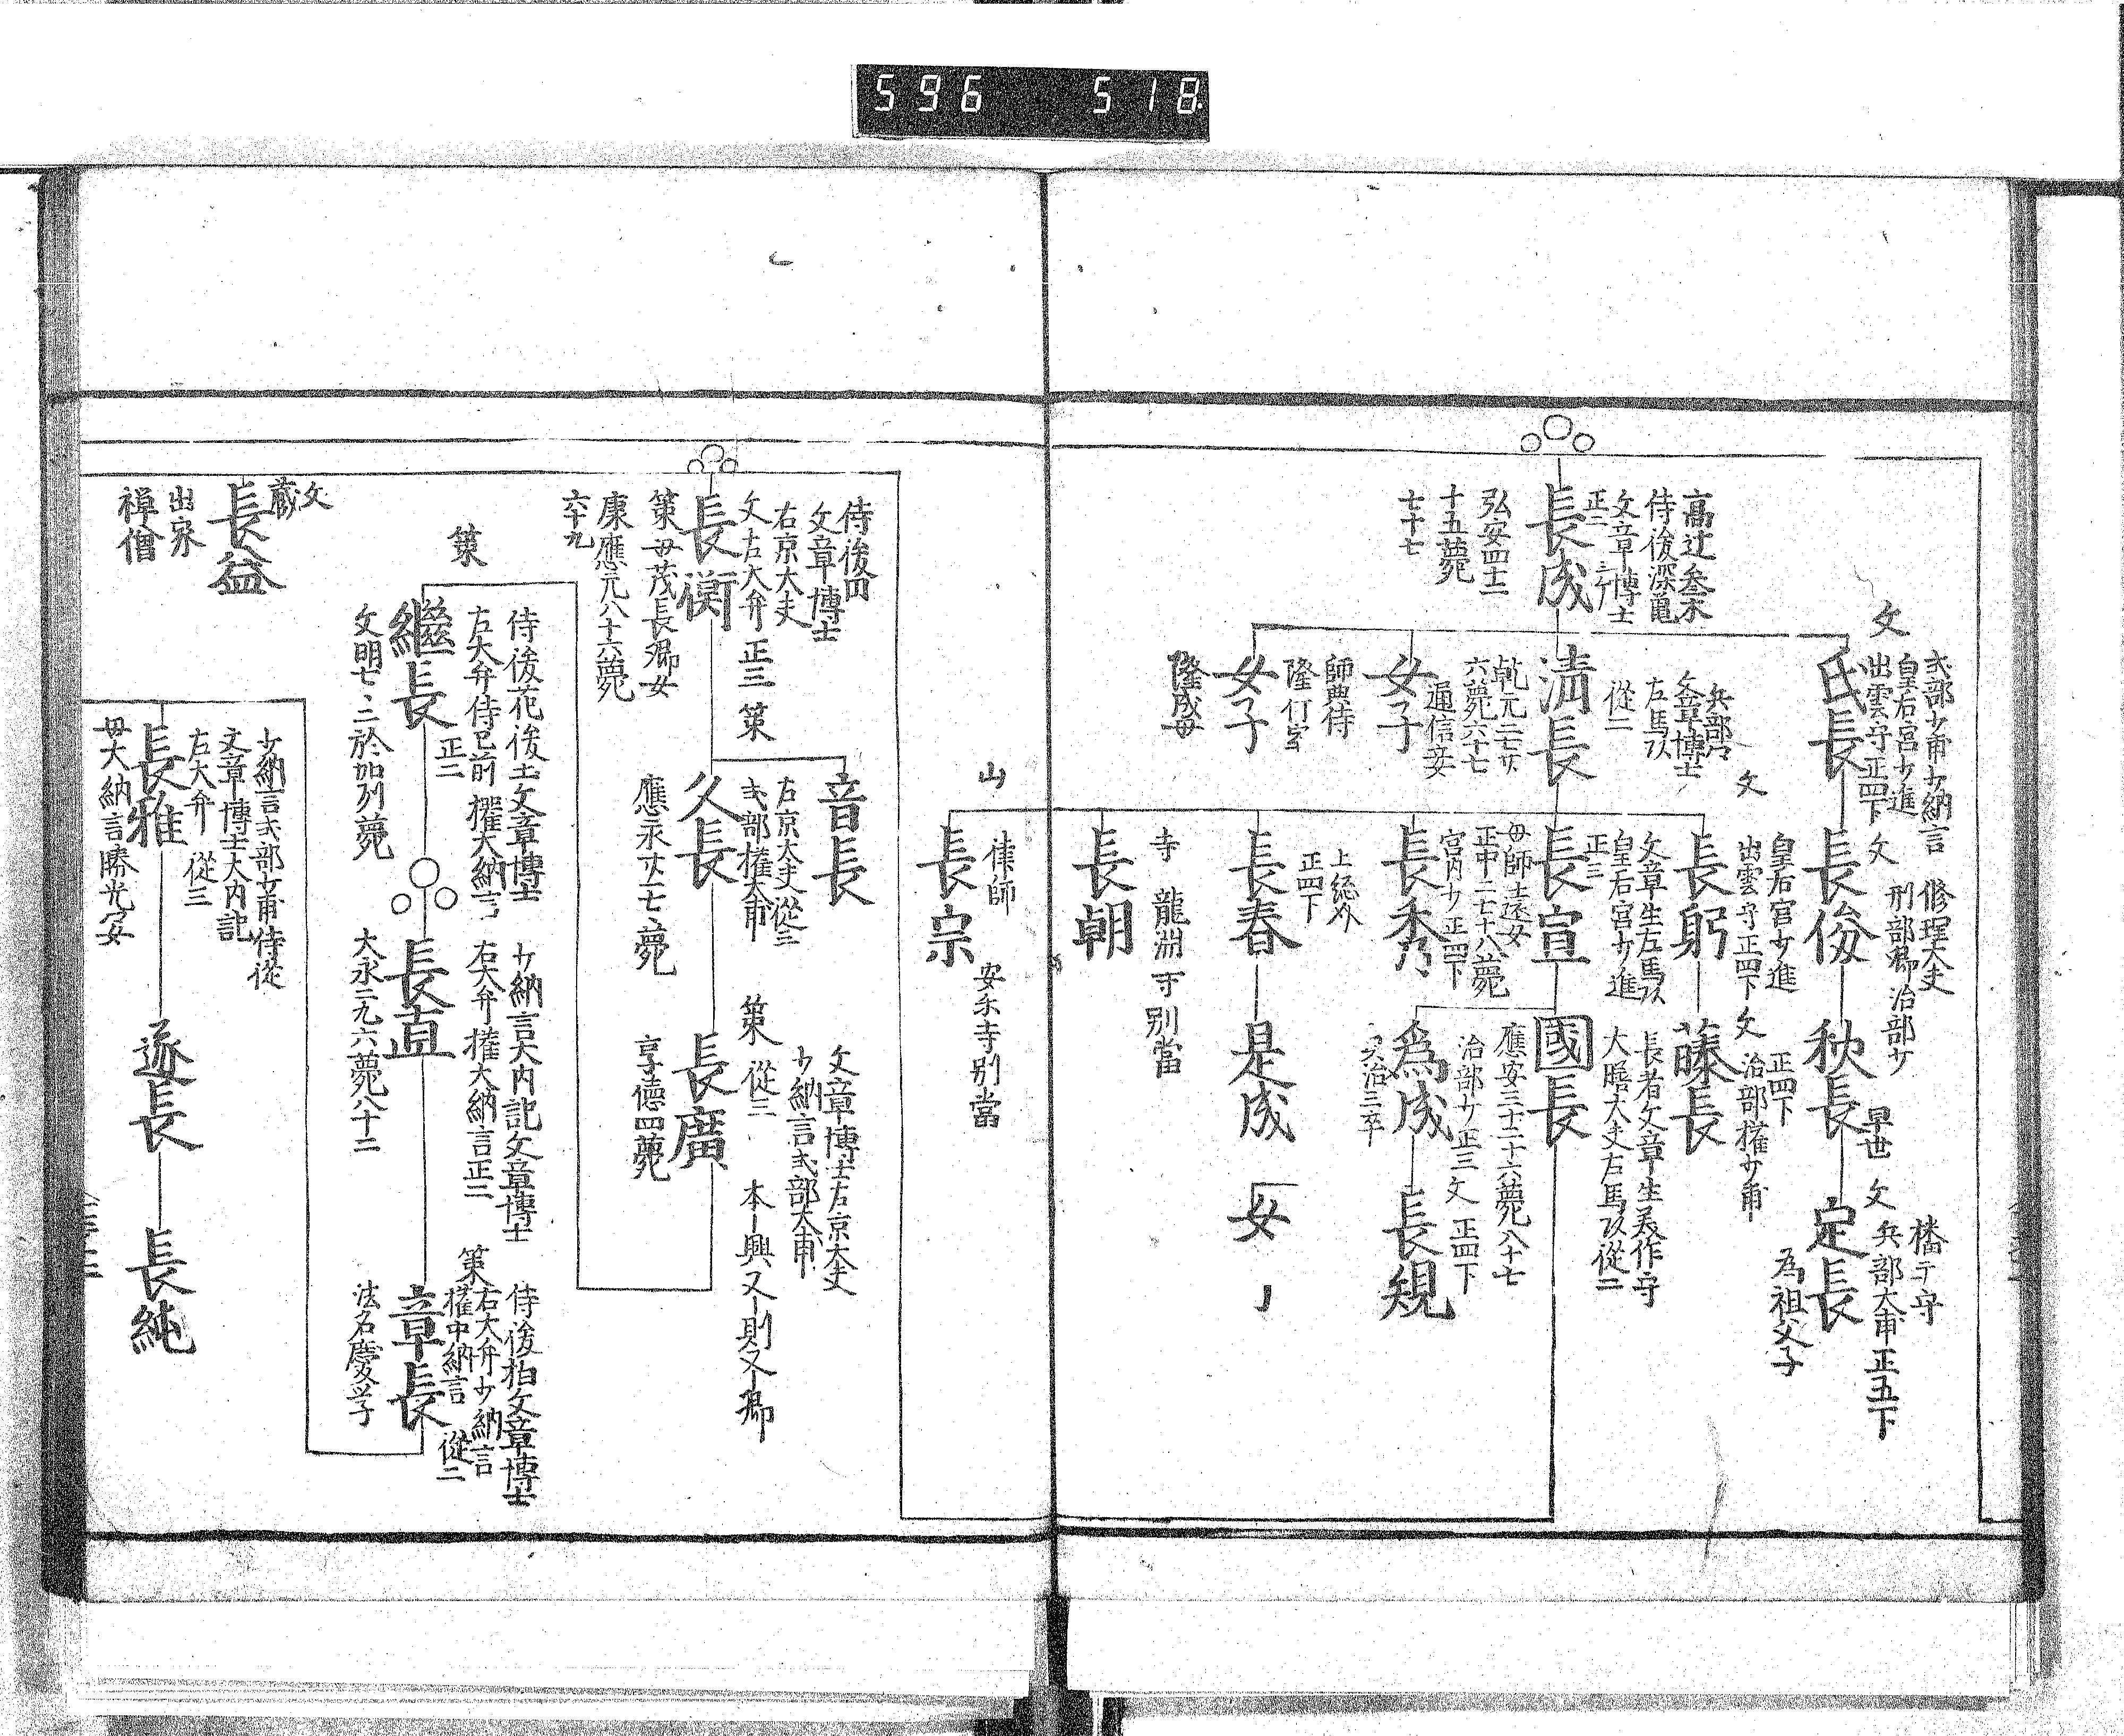 596 518
高辻参木
侍後深亀
文章博士
正二
長成
弘安四十二
十五薨
七十七
文
氏長
式部少甫少納言
皇后宮少進
出雲守正四下
兵部
文章博士
左馬
從二
清長
乾元二七廿
六薨六十七
女子
通信妾
師典侍
女子
隆成母
文
長俊
修理大夫
刑部卿治部少
秋長
早世
文
定長
播广守
兵部大甫正五下
為祖父子
文
長躬
皇后宮少進
出雲守正四下
文
藤長
正四下
治部権少甫
長宣
文章生左馬
皇后宮少進
正三
母師士遠女
正中二七十八薨
國長
長者文章生美作守
大膳大夫右馬從二
應安三十二十六薨八十七
長秀
宮内少正四下
為成
治部少正三
長規
文正四下
長春
正四下
是成
女
寺
長朝
龍洲寺別當
山
長宗
律師
安楽寺別當
侍後四
文章博士
右京大夫
文右大弁
正三
長衡
策母茂長卿女
康應元八十六薨
六十九
音長
策
久長
右京大夫從三
式部権大甫
應永廿七薨
策
長廣
文章博士右京大夫
少納言式部大甫
從三
本興又則又卿
亨徳四薨
策
継長
侍後花後土文章博士
右大弁侍已前権大納言
正二
文明七二於加列薨
長直
少納言大内記文章博士
右大弁権大納言正二
大永二九六薨八十二
策
章長
侍後柏文章博士
右大弁少納言
権中納言從二
法名慶
文
蔵
長益
出家
禅僧
長雅
少納言式部少甫侍從
文章博士大内記
右大弁從三
母大納言勝光女
遂長
長純